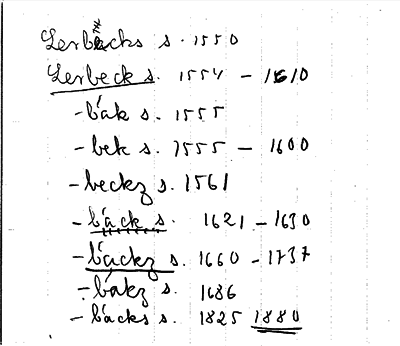 Lerbäcks s. 1550
Lerbeck s. 1554 - 1610
- bäk s. 1555
- bek s. 1555 - 1600
- beckz s. 1561
- bäck s. 1621 - 1630
- bäckz s. 1660 - 1737
- bäkz s. 1686
- bäcks s. 1825 1880